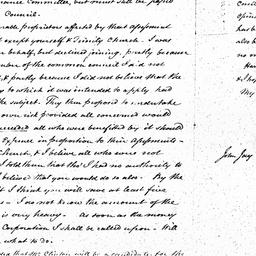 nance Committee, but must still be passed
Council.
made, proprietors affected by that assessment
except yourself & Trinity Church. I was
behalf, but declined joining, partly because
mber of the common council I did not
& partly because I did not believe that the
to which it was intended to apply had
the subject. They then proposed to undertake
own risk provided all concerned would
all who were benefitted by it should
expence in proportion to their assessments.
Church, & I believe all who were not
I told them that tho' I had no authority to
believe that you would do so also. By the
I think you will save at least five
I do not know the amount of the
is very heavy. As soon as the money
Corporation I shall be called upon. Will
what to do.
that Mr. Clinton will be a candidate for the
Coun
opini
has b
also b
no o
Ha
& I ho
My
John Jay